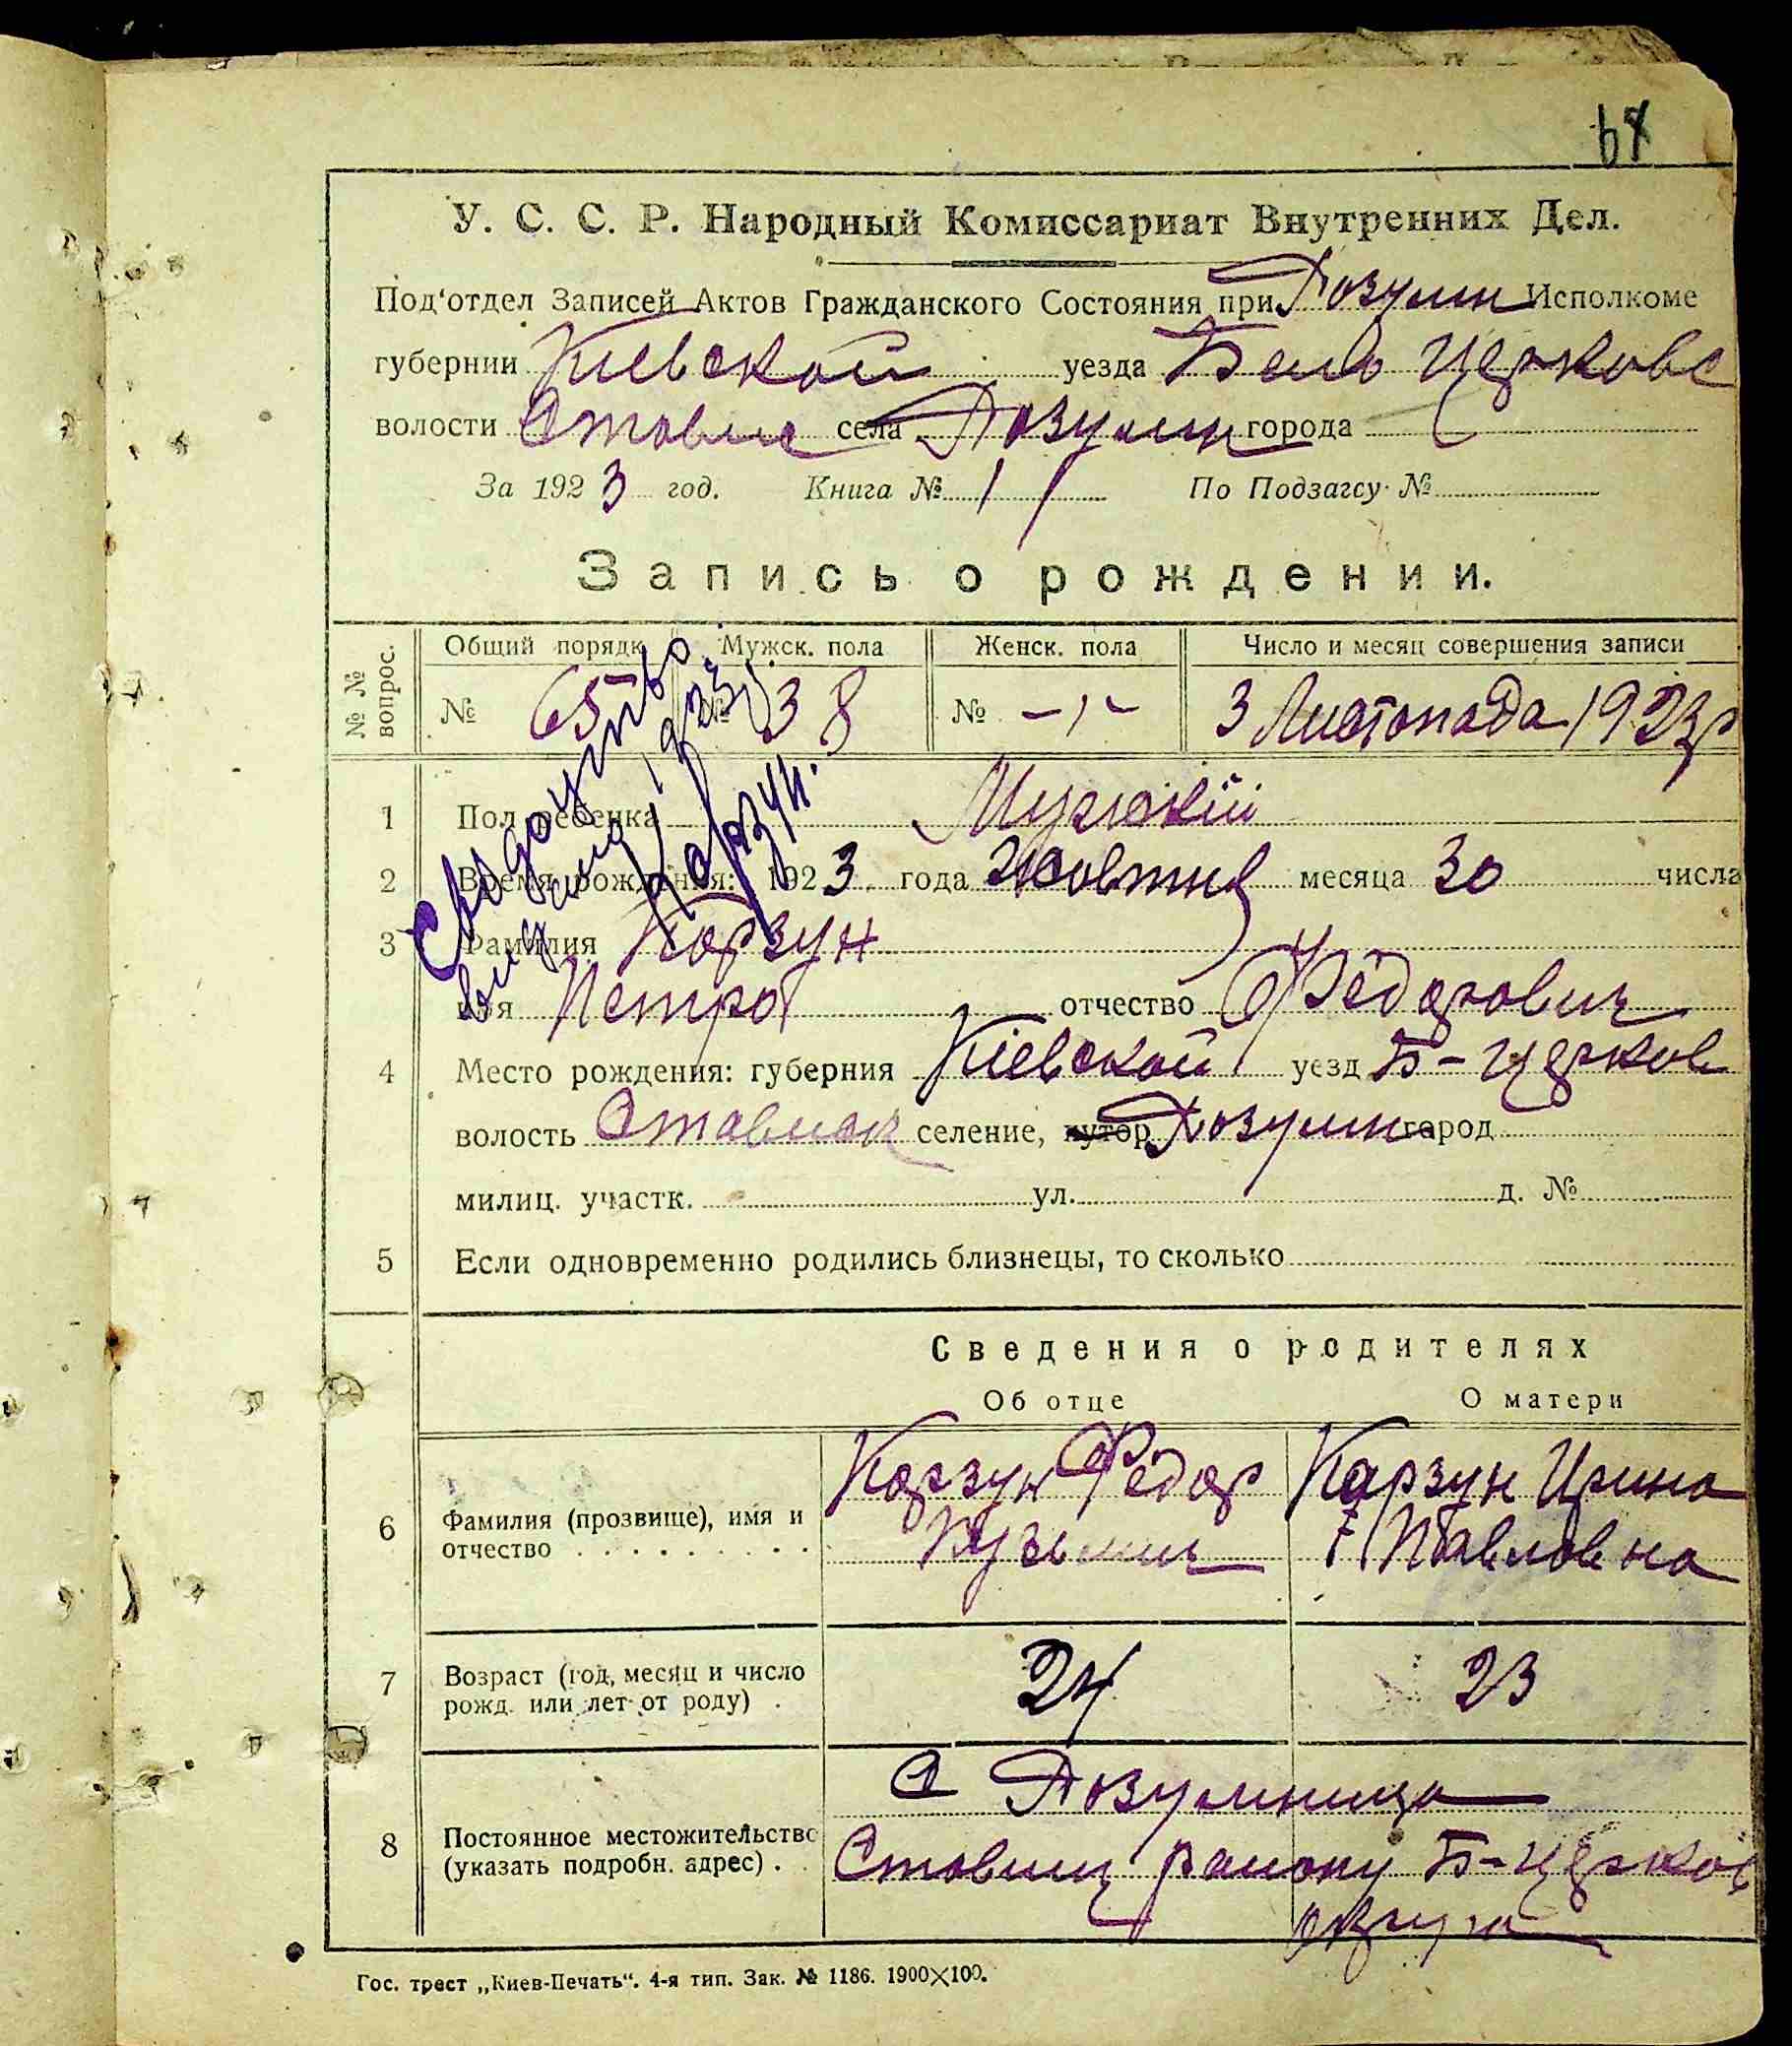 У. С. С. Р. Народный Комиссариат Внутренних Дел.
Под'отдел Записей Актов Гражданского Состояния при Розумн Исполкоме
губернии Киевской уезда Бело Церковс
волости Ставис села Розумн города
За 1923 год. Книга № 1 По Подзагсу №
Запись о рождении.
№ № вопрос. Общий порядк Мужск. пола Женск. пола Число и месяц совершения записи
№ 65 38 № -"- 3 Листопада 1923р
1 Пол ребенка Мужскій
2 Время рождения: 1923 года Жовтня месяца 30 числа
3 Фамилия Корзун
имя Петро отчество Фёдорович
4 Место рождения: губерния Киевской уезд Б-Церков
волость Стависк селение, хутор Розумн город
милиц. участк. ул. д. №
5 Если одновременно родились близнецы, то сколько
Сведения о родителях
Об отце О матери
Корзун Фёдор Карзун Ирина
6 Фамилия (прозвище), имя и отчество Кузьмич Павловна
7 Возраст (год, месяц и число рожд. или лет от роду) 24 23
С Розумница
8 Постоянное местожительство (указать подробн. адрес) Ставищ району Б-Церков
округа
Гос. трест „Киев-Печать“. 4-я тип. Зак. № 1186. 1900×100.